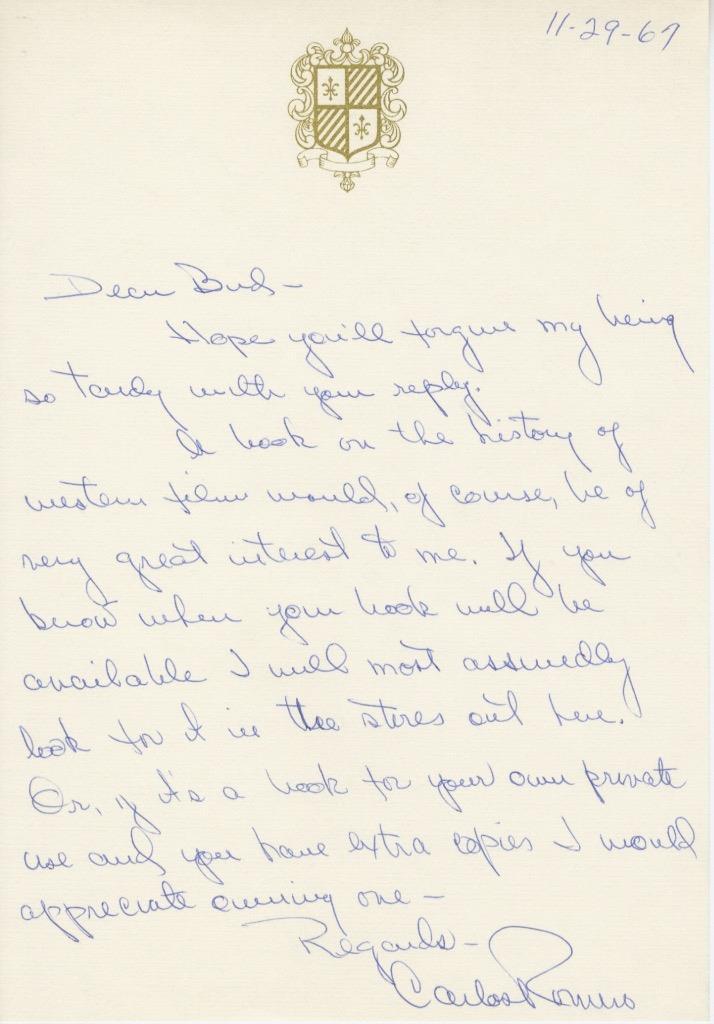 11-29-67
Dear Bud-
Hope you'll forgive my being
so tardy with your reply.
A book on the history of
western film would, of course, be of
very great interest to me. If you
know when your book will be
available I will most assuredly
look for it in the stores out here.
Or, if it's a book for your own private
use and you have extra copies I would
appreciate owning one-
Regards-
Carlos Romero